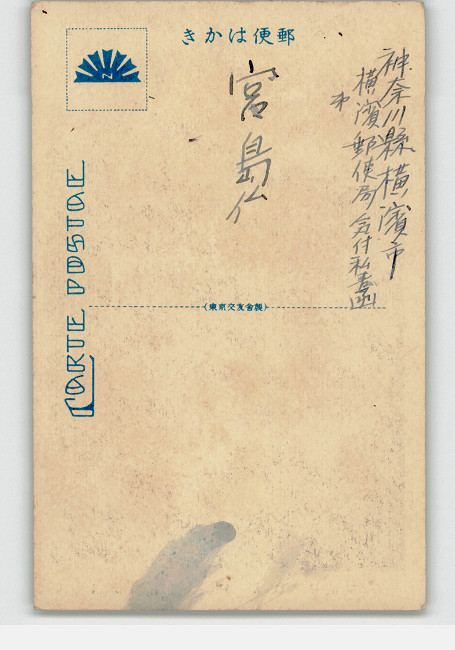 きかは便郵
神奈川縣横濱市
横濱郵便局気付私書函
宮島
CARTE POSTALE
(東京交友會製)
N